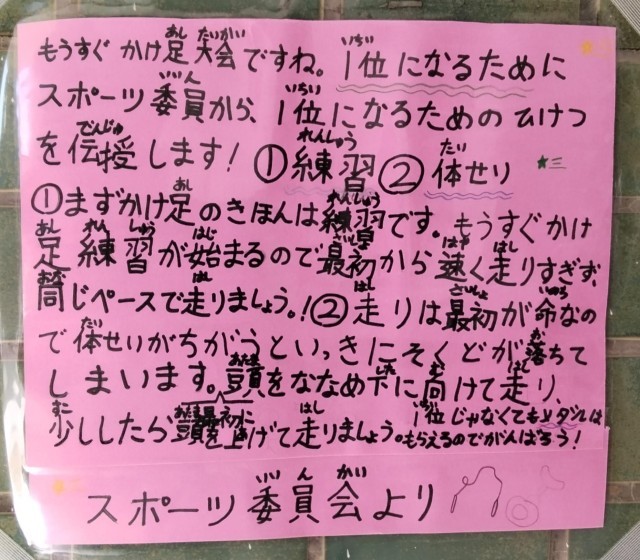 もうすぐかけ足大会ですね。1位になるために
スポーツ委員から、1位になるためのひけつ
を伝授します！①練習②体せり
①まずかけ足のきほんは練習です。もうすぐかけ
足練習が始まるので最初から速く走りすぎず、
同じペースで走りましょう。！②走りは最初が命なの
で体せりがちがうといっきにそくどが落ちて
しまいます。頭をななめ下に向けて走り、
少ししたら頭を上げて走りましょう。
1位じゃなくてもメダルは
もらえるのでがんばろう！
スポーツ委員会より